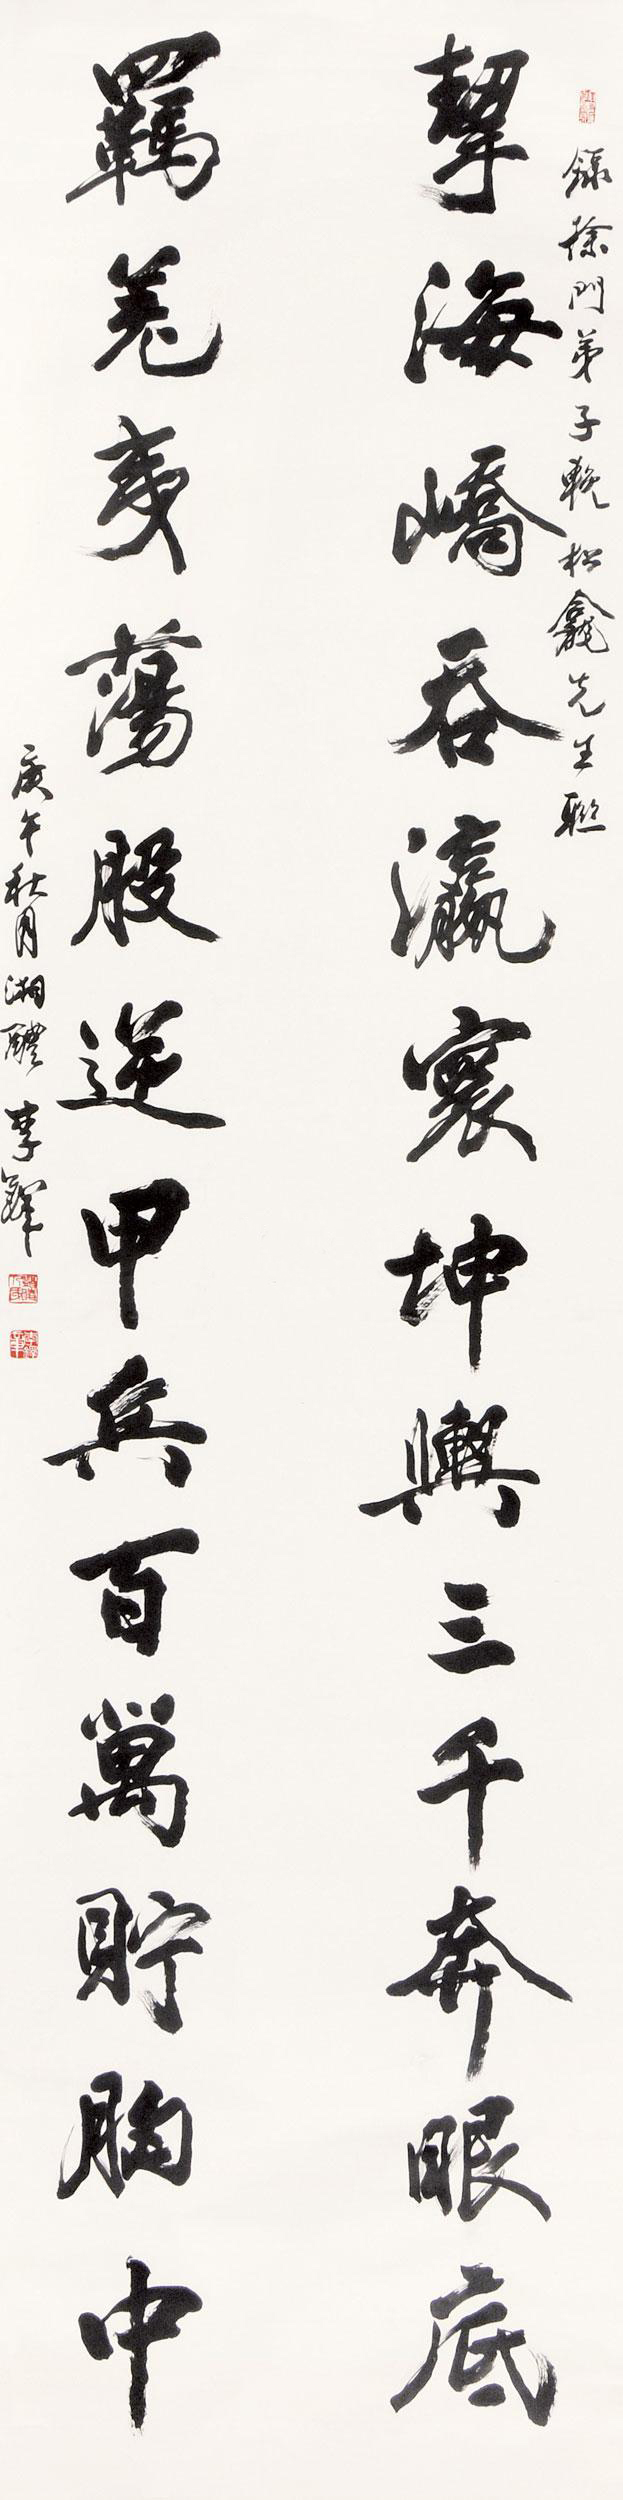 錄徐門弟子輓松龕先生聯
挈海嶠吞瀛寰坤輿三千奔眼底
羈羌夷蕩股逆甲兵百萬貯胸中
庚午秋月湖醴李鐸